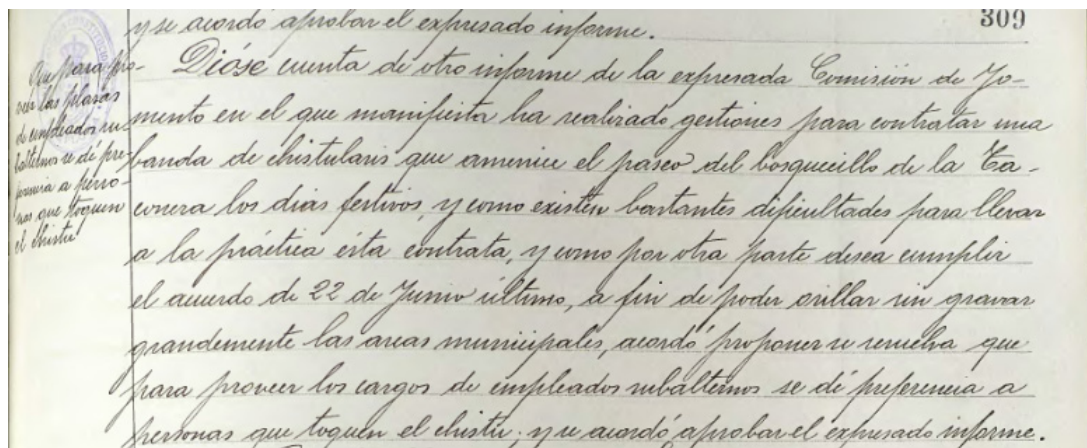 309
y se acordó aprobar el expresado informe.
Que para pro-
veer las plazas
de empleados su-
balternos se dé pre-
ferencia a perso-
nas que toquen
el chistu
Dióse cuenta de otro informe de la expresada Comisión de Fo-
mento en el que manifiesta ha realizado gestiones para contratar una
banda de chistularis que amenice el paseo del bosquecillo de la Ta-
conera los dias festivos, y como existen bastantes dificultades para llevar
a la práctica ésta contrata, y como por otra parte desea cumplir
el acuerdo de 22 de Junio último, a fin de poder orillar sin gravar
grandemente las arcas municipales, acordó proponer se resuelva que
para proveer los cargos de empleados subalternos se dé preferencia a
personas que toquen el chistu. y se acordó aprobar el expresado informe.